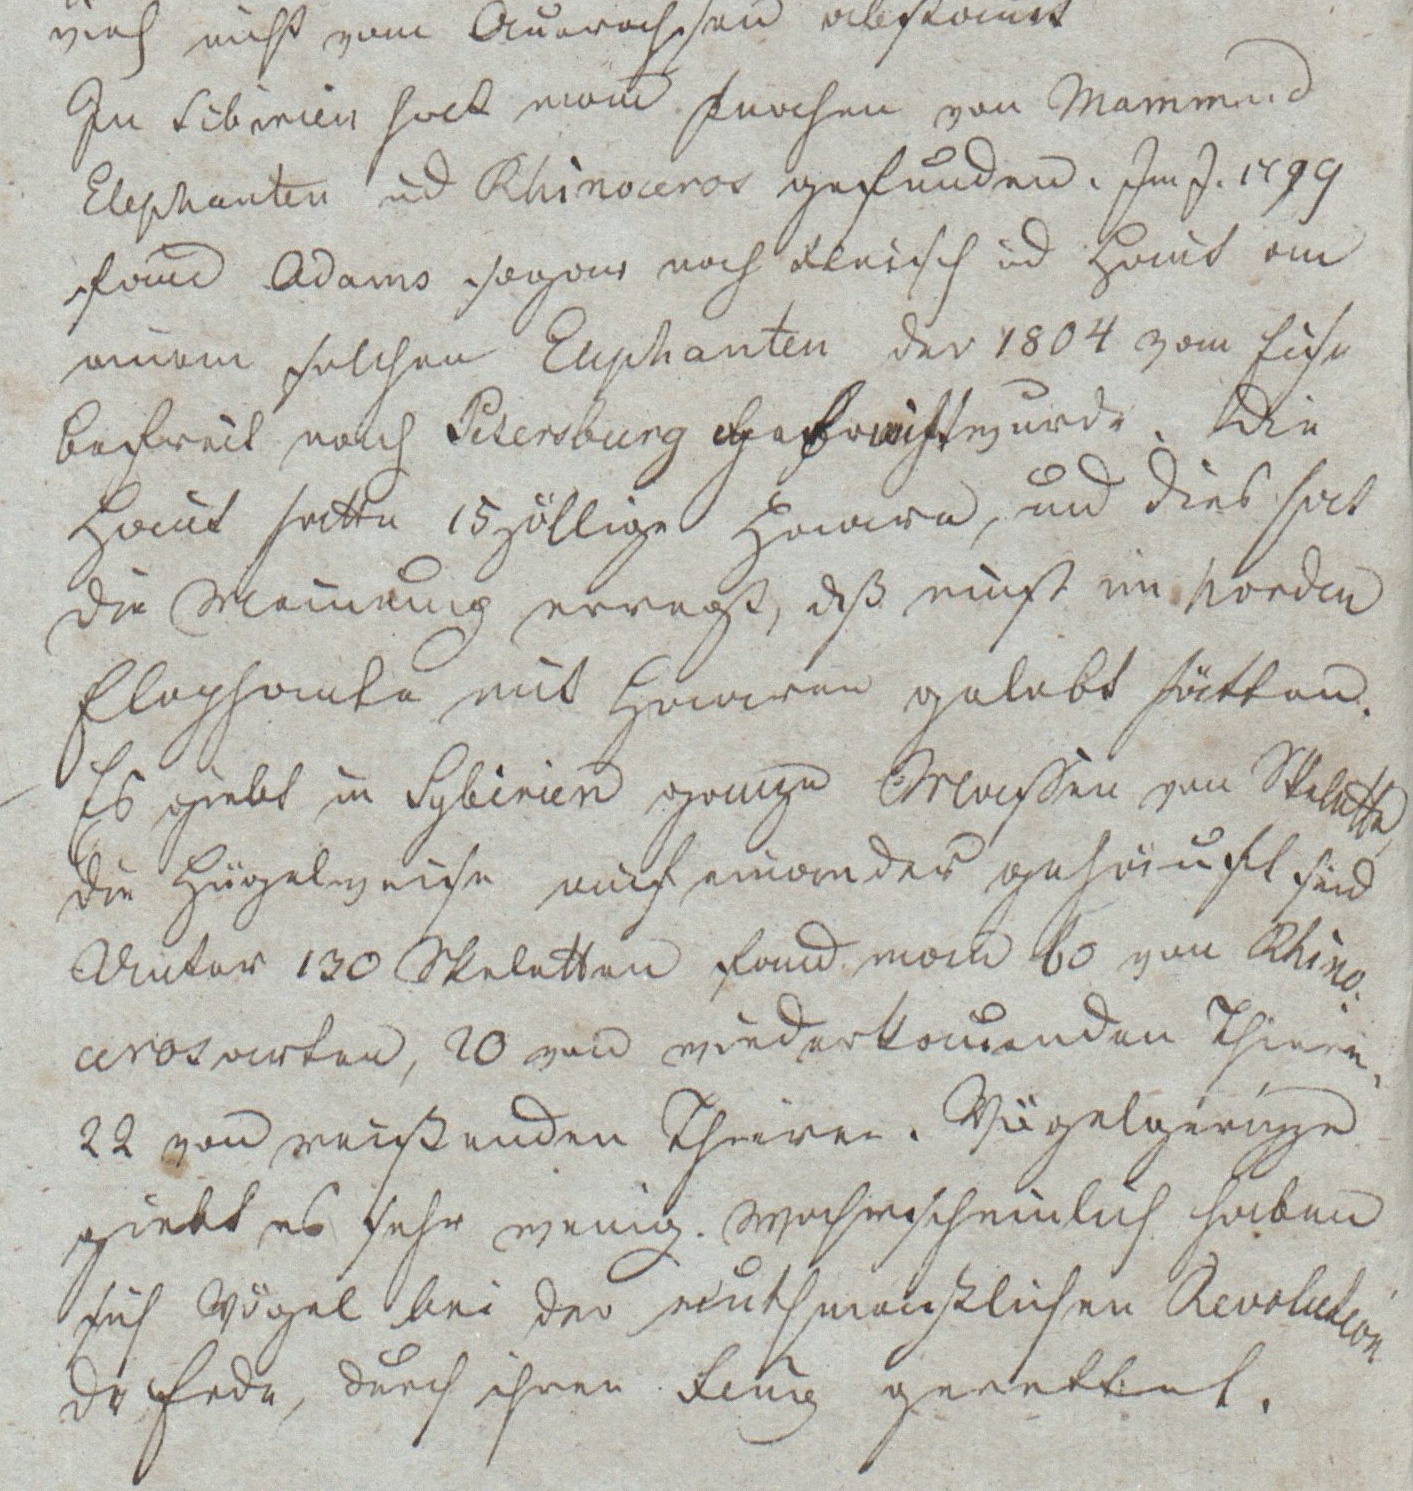 vieh nicht vom Auerochsen abstamt
In Sibirien hat man Knochen von Mammud
Elephanten ud Rhinoceros gefunden. Im J. 1799
fand Adams sogar noch Fleisch ud Haut an
einem solchen Elephanten der 1804 vom Eise
befreit nach Petersburg gebracht wurde. Die
Haut hatte 15zöllige Haare, und dies hat
die Meinung erregt, dß einst im Norden
Elephante mit Haaren gelebt hätten.
Es giebt in Sybirien ganze Massen von Skelette,
die Hügelweise auf einander gehäuft sind
Unter 130 Skeletten fand man 60 von Rhino:
cerosarten, 20 von wiederkauenden Thieren,
22 von reißenden Thieren. Vögelgerippe
giebt es sehr wenig. Wahrscheinlich haben
sich Vögel bei der muthmaaßlichen Revolution
der Erde, durch ihren Flug gerettet.